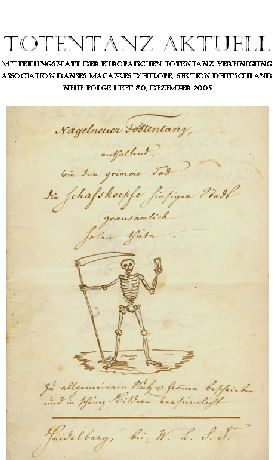 TOTENTANZ AKTUELL
MITTEILUNGSBLATT DER EUROPÄISCHEN TOTENTANZ-VEREINIGUNG
ASSOCIATION DANSES MACABRES D'EUROPE, SEKTION DEUTSCHLAND
NEUE FOLGE HEFT 80, DEZEMBER 2005
Nagelneuer Todtentanz,
enthaltend
wie der grimme Tod
die Schafskoepfe hiesigen Stadt
grausamlich
holen thäte.
Zu allgemeinem Nutz u frommen beschrieben
und in schöne Bildnen
Heidelberg, bei K. L. S. T.